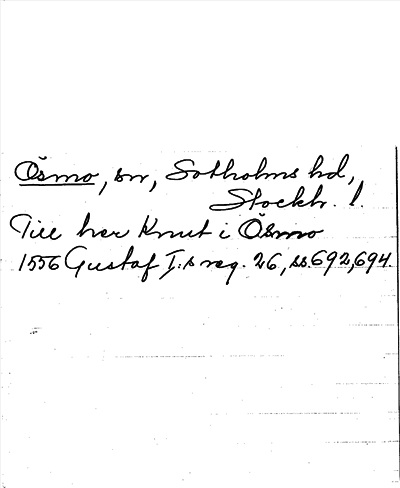 Ösmo, sn, Sotholms hd,
Stockh. l.
Till her Knut i Ösmo
1556 Gustaf I:s reg. 26, ss. 692, 694.